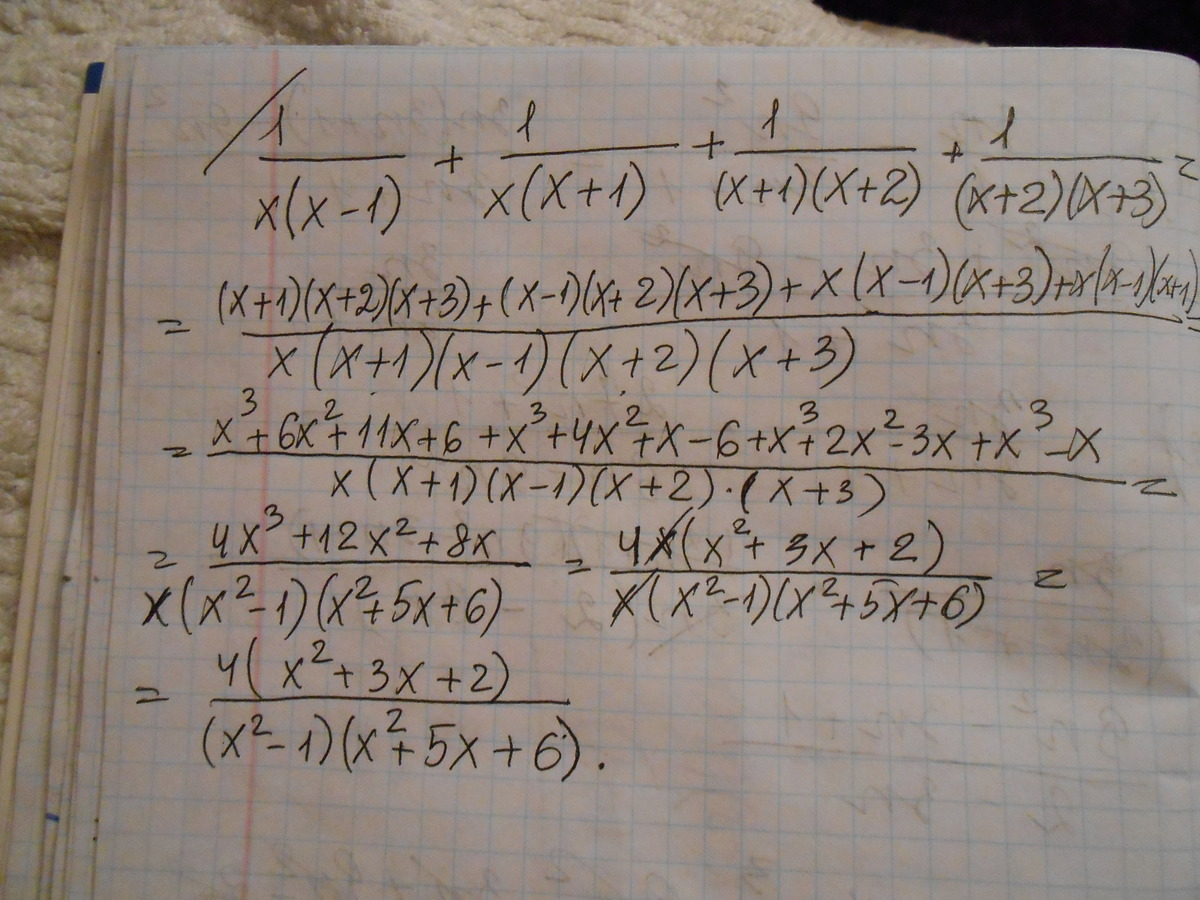 1/(x(x-1)) + 1/(x(x+1)) + 1/((x+1)(x+2)) + 1/((x+2)(x+3)) =
= ((x+1)(x+2)(x+3)+(x-1)(x+2)(x+3)+x(x-1)(x+3)+x(x-1)(x+1))/(x(x+1)(x-1)(x+2)(x+3)) =
= (x³+6x²+11x+6+x³+4x²+x-6+x³+2x²-3x+x³-x)/(x(x+1)(x-1)(x+2)·(x+3)) =
= (4x³+12x²+8x)/(x(x²-1)(x²+5x+6)) = (4x(x²+3x+2))/(x(x²-1)(x²+5x+6)) =
= (4(x²+3x+2))/((x²-1)(x²+5x+6)).